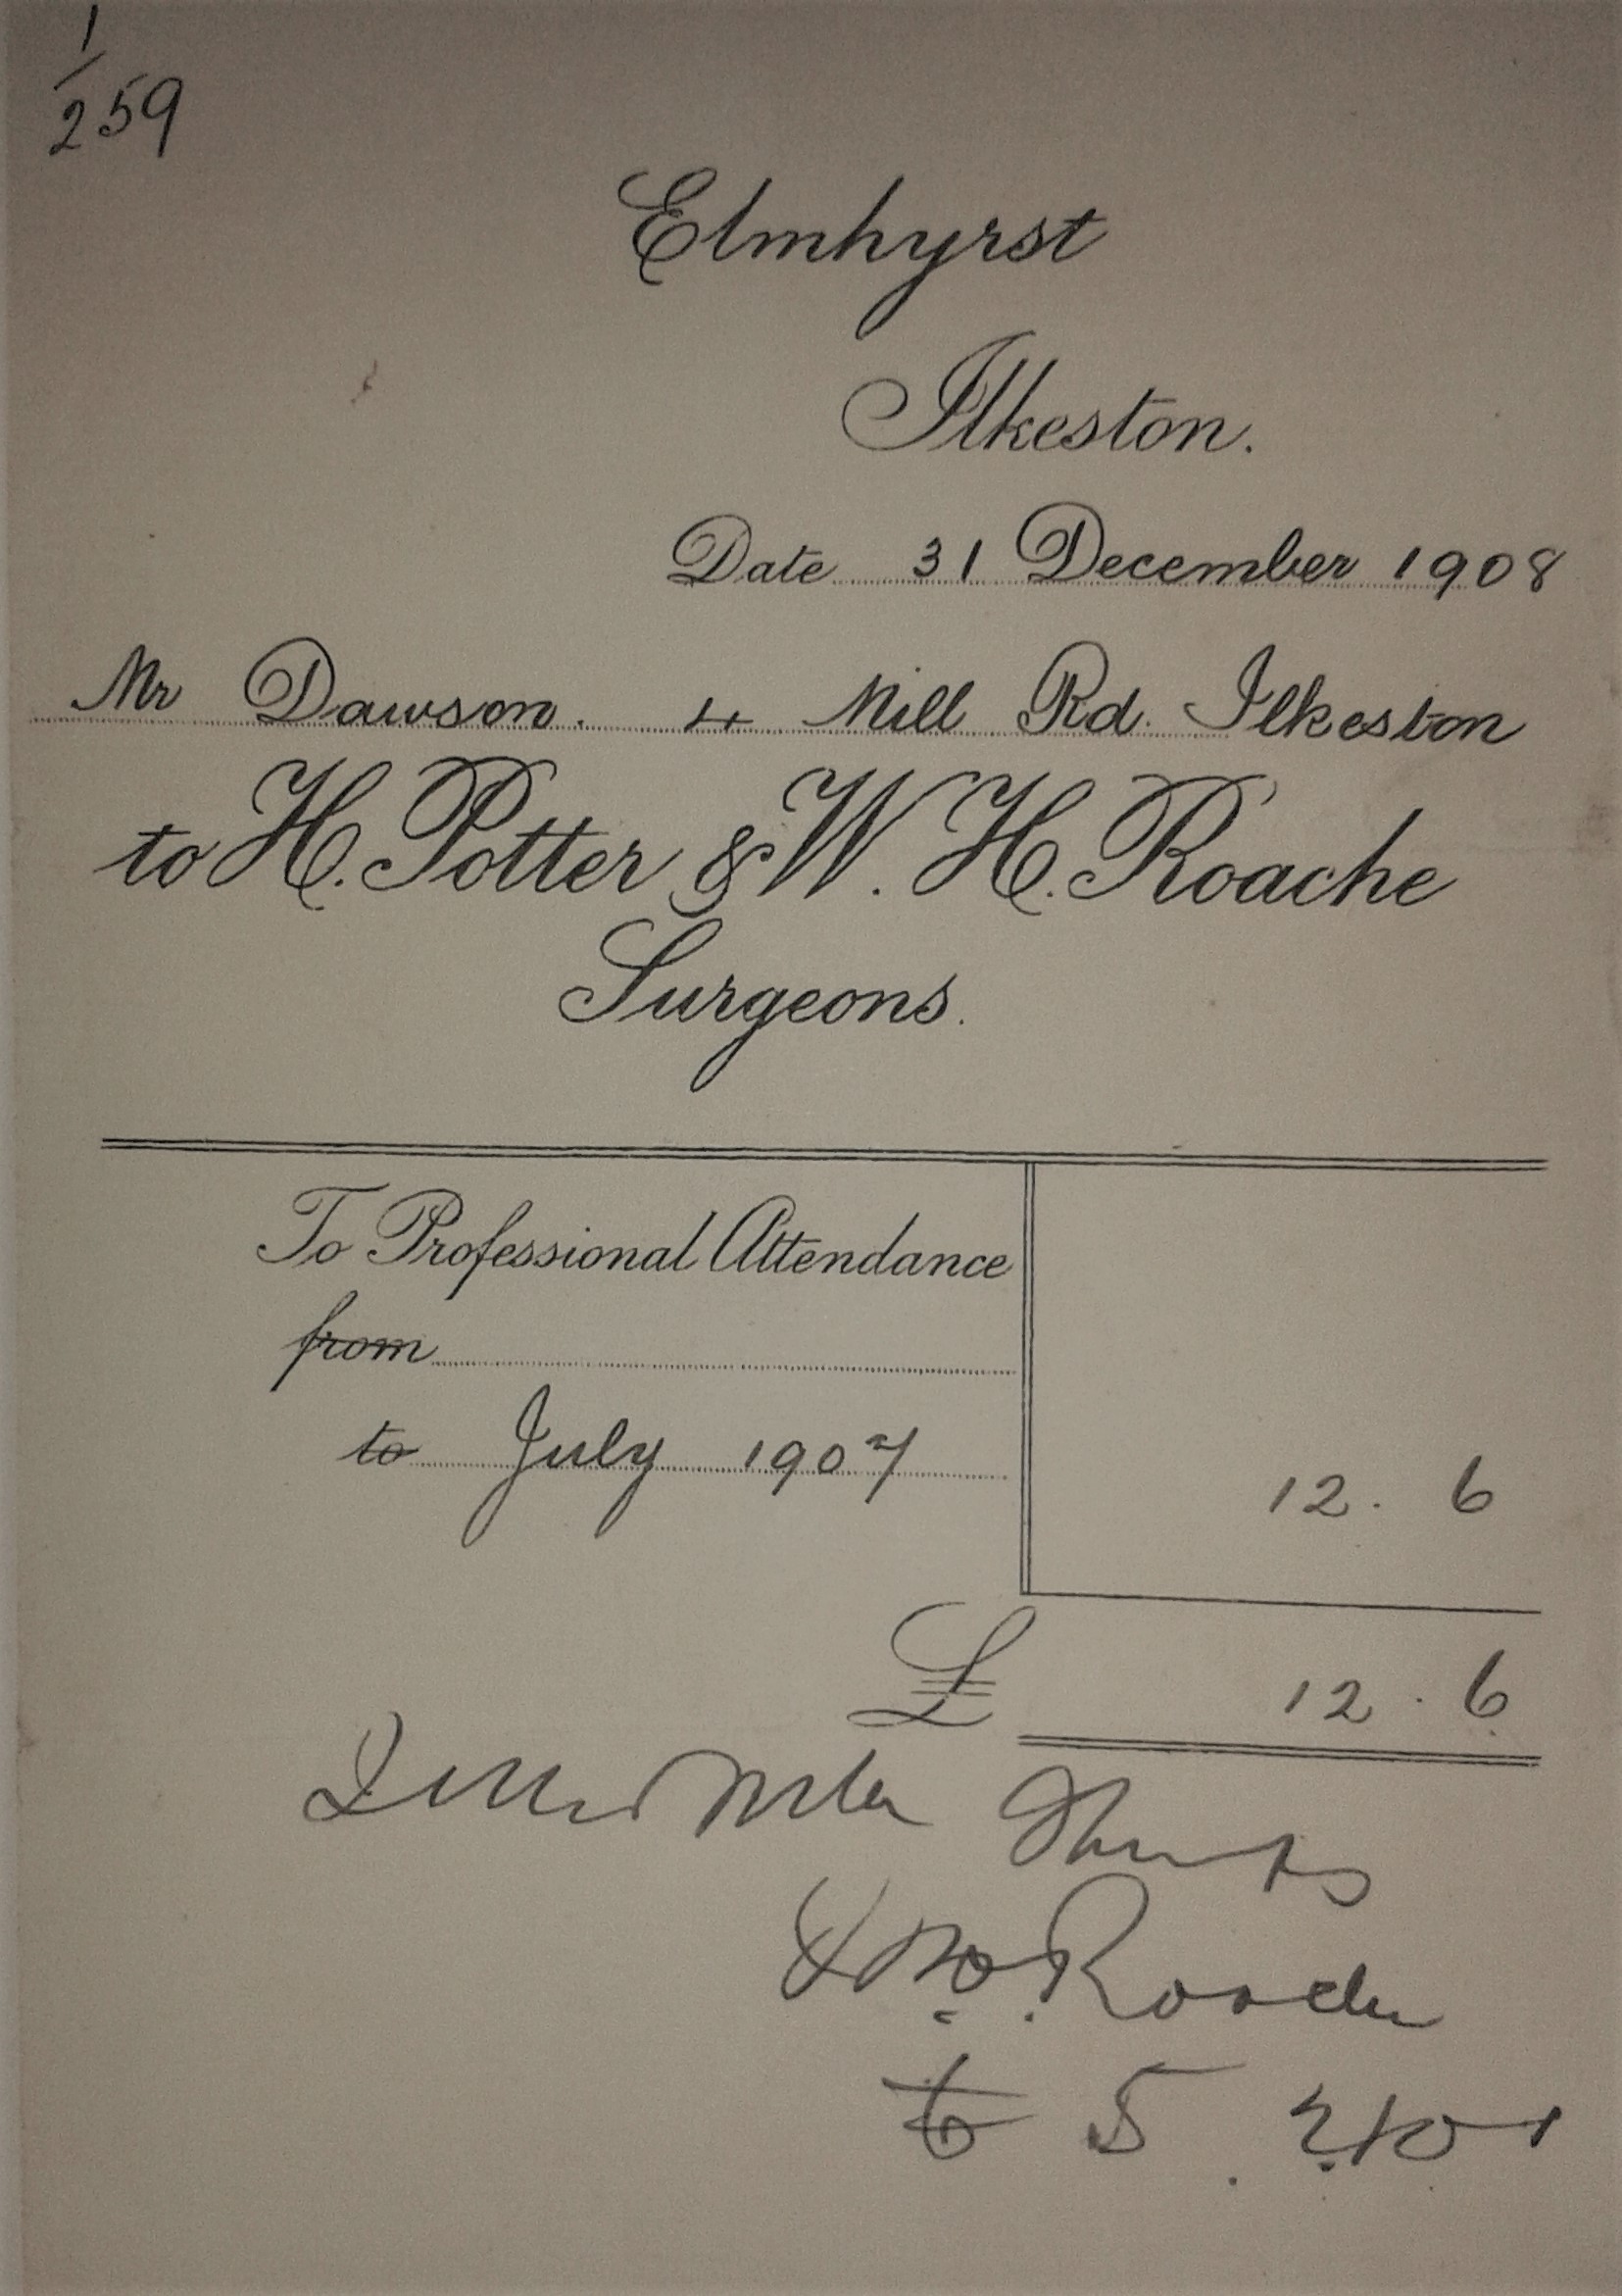 1/259
Elmhyrst
Ilkeston.
Date 31 December 1908
Mr Dawson. 4 Mill Rd. Ilkeston
to H. Potter & W. H. Roache
Surgeons.
To Professional Attendance
from
to July 1907
12. 6
£ 12. 6
with Thanks
Roache
5